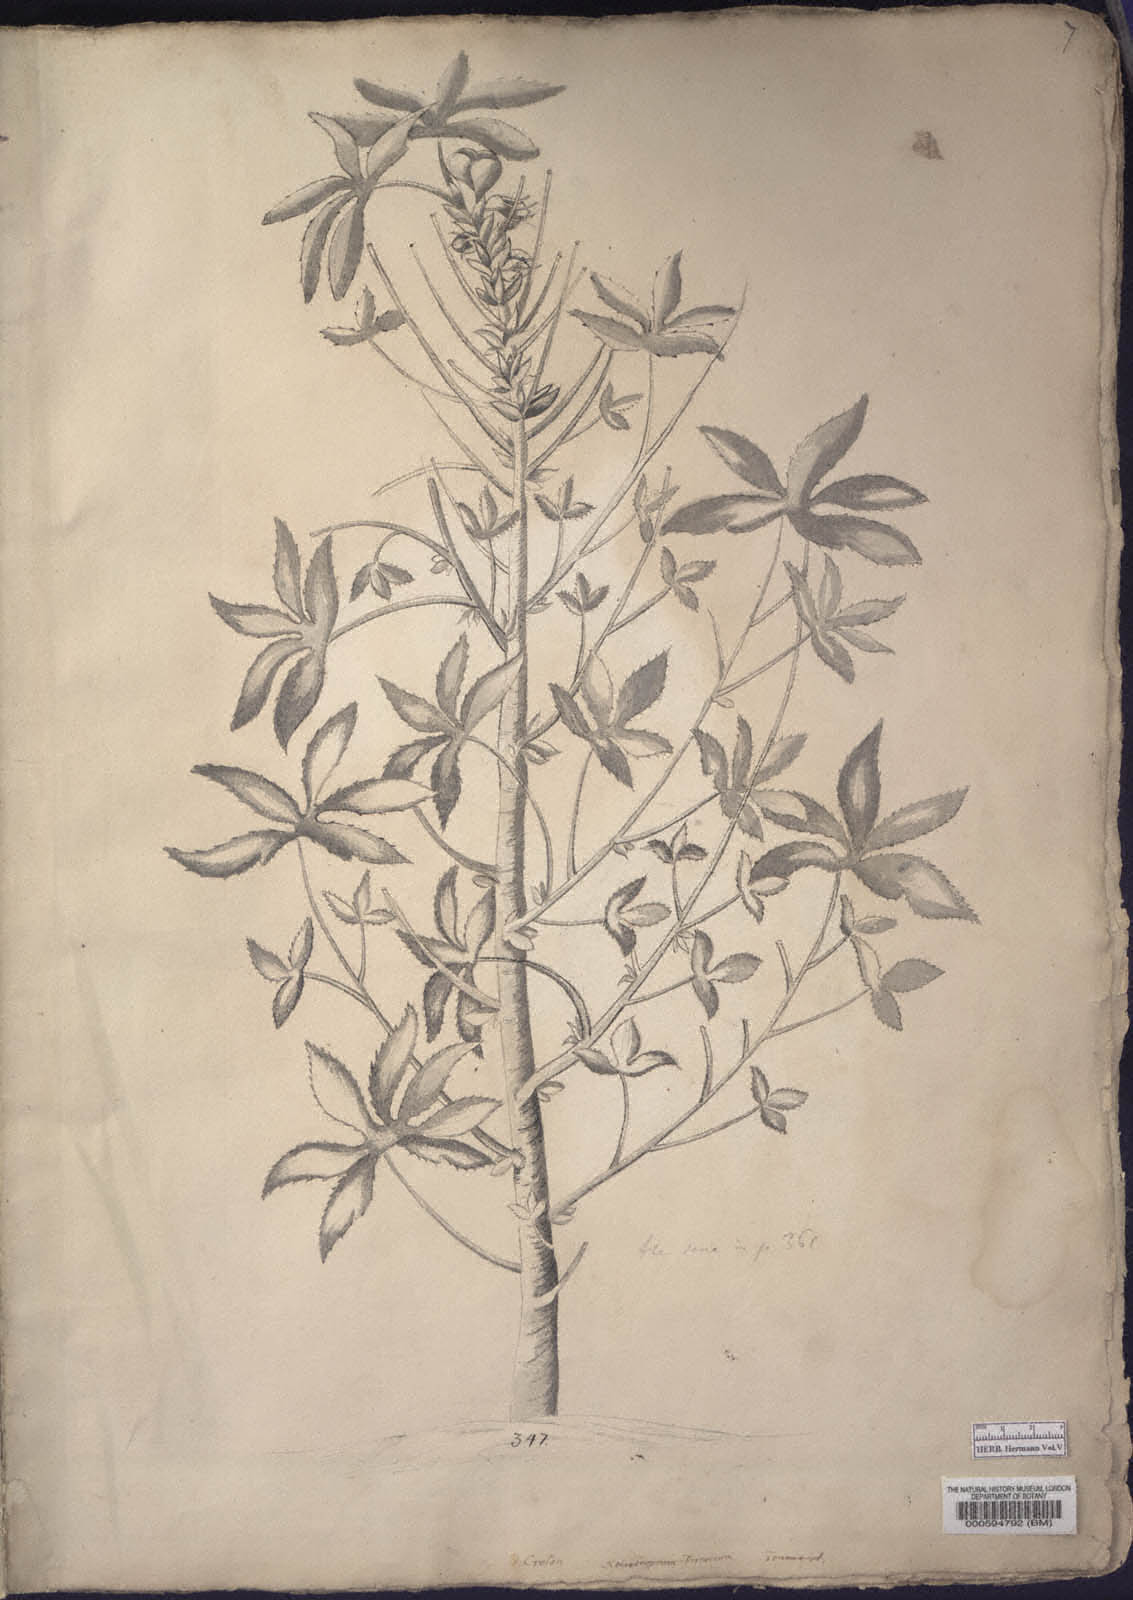 7
in p. 36
347.
HERB. Hermann Vol. V
THE NATURAL HISTORY MUSEUM, LONDON
DEPARTMENT OF BOTANY
000594792 (BM)
Croton